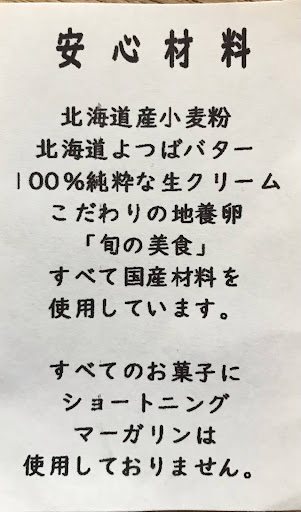 安心材料
北海道産小麦粉
北海道よつばバター
100%純粋な生クリーム
こだわりの地養卵
「旬の美食」
すべて国産材料を
使用しています。
すべてのお菓子に
ショートニング
マーガリンは
使用しておりません。